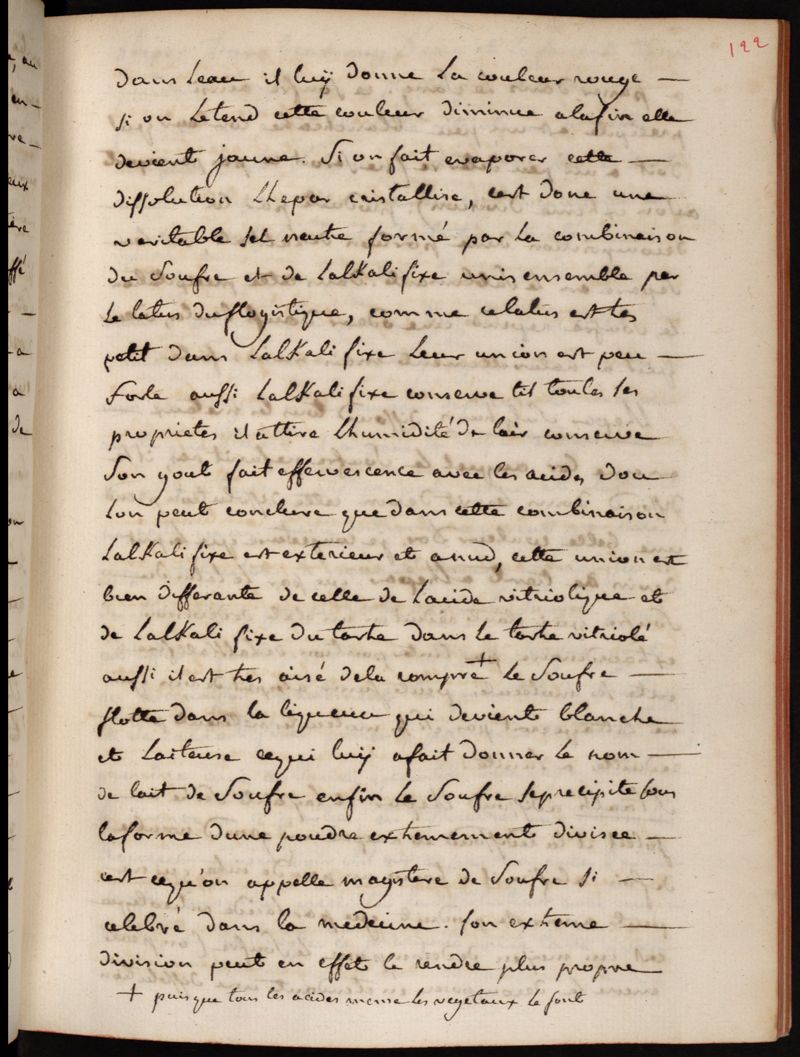 122
dans leau il luÿ donne la couleur rouge —
si on letend cette couleur diminue alafin elle
devient jaune. Si on fait evaporer cette —
dissolution Lhepar cristallise, cest donc une
veritable sel neutre formé par la combinaison
du Soufre et de Lalkali fixe unis ensemble par
le latus duflogistique, comme celatus est tes
petit dans Lalkali fixe leur union est peu —
forte aussi Lalkali fixe conserve til toutes ses
proprietes il attire Lhumidité de lair conserve
Son gout fait effervescence avec les acides dou
Lon peut conclure que dans cette combinaison
Lalkali fixe est exterieur et anud, cette union est
bien differante de celle de Lacide vitriolique et
de Lalkali fixe du tartre dans le tartre vitriolé
aussi il est tres aisé dela compre + le Soufre —
flotte dans la liqueur qui devient blanche
et laiteuse cequi luÿ afait donner le nom —
de lait de Soufre enfin le Soufre seprecipite sous
laforme dune poudre extremement divisee —
cest cequ'on appelle magistere de Soufre si —
celebré dans la medecine. Son extreme —
division peut en effet le rendre plus propre
+ puis que tous les acides meme les vegetaux le font